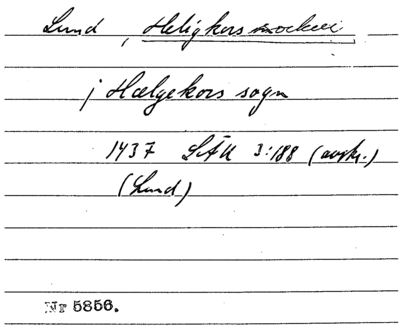 Lund, Heligkors sockeri
j Hælgekors sogn
1437 LÄU 3:188 (avskr.)
(Lund)
Nr 5856.